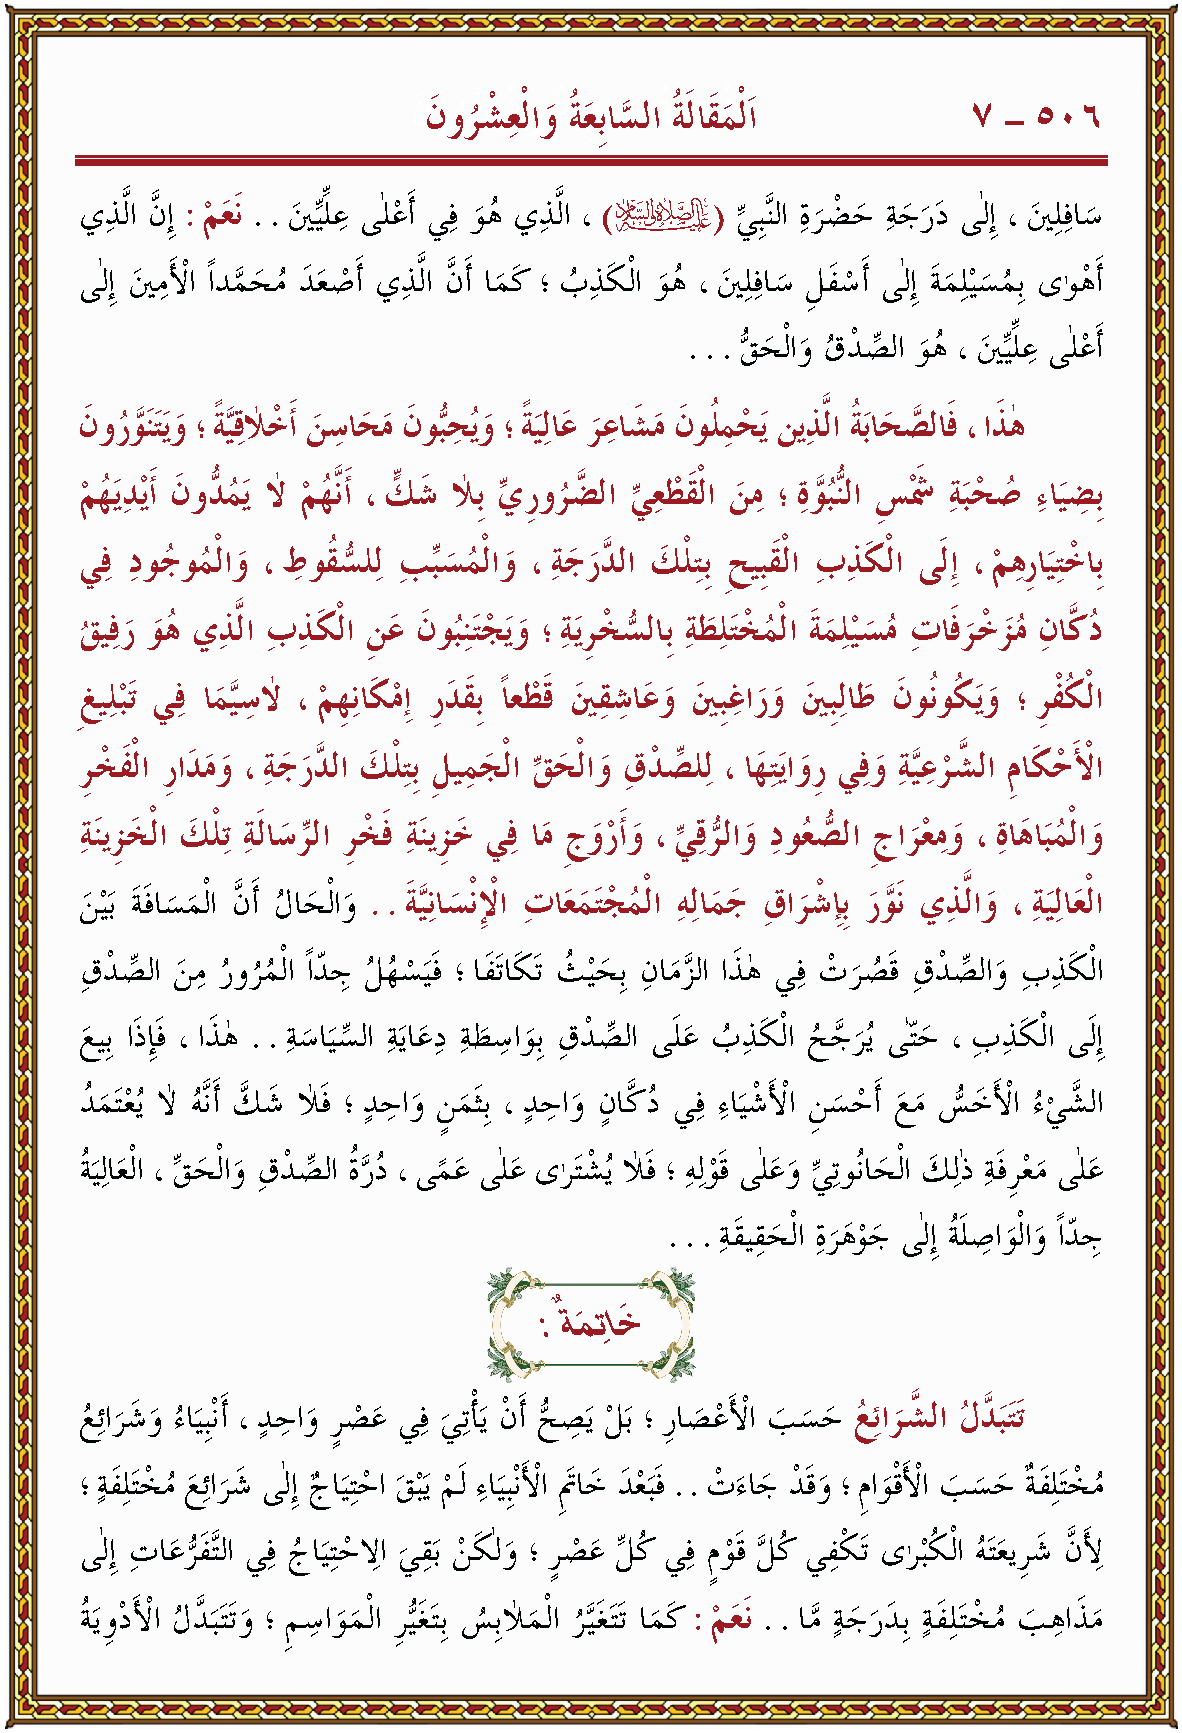 ٥٠٦ – ٧ اَلْمَقَالَةُ السَّابِعَةُ وَالْعِشْرُونَ
سَافِلِينَ ، إِلٰى دَرَجَةِ حَضْرَةِ النَّبِيِّ (عَلَيْهِ الصَّلَاةُ وَالسَّلَامُ) ، الَّذِي هُوَ فِي أَعْلٰى عِلِّيِّينَ . . نَعَمْ : إِنَّ الَّذِي
أَهْوٰى بِمُسَيْلِمَةَ إِلٰى أَسْفَلِ سَافِلِينَ ، هُوَ الْكَذِبُ ؛ كَمَا أَنَّ الَّذِي أَصْعَدَ مُحَمَّداً الْأَمِينَ إِلٰى
أَعْلٰى عِلِّيِّينَ ، هُوَ الصِّدْقُ وَالْحَقُّ . . .
هٰذَا ، فَالصَّحَابَةُ الَّذِينَ يَحْمِلُونَ مَشَاعِرَ عَالِيَةً ؛ وَيُحِبُّونَ مَحَاسِنَ أَخْلَاقِيَّةً ؛ وَيَتَنَوَّرُونَ
بِضِيَاءِ صُحْبَةِ شَمْسِ النُّبُوَّةِ ؛ مِنَ الْقَطْعِيِّ الضَّرُورِيِّ بِلَا شَكٍّ ، أَنَّهُمْ لَا يَمُدُّونَ أَيْدِيَهُمْ
بِاخْتِيَارِهِمْ ، إِلَى الْكَذِبِ الْقَبِيحِ بِتِلْكَ الدَّرَجَةِ ، وَالْمُسَبِّبِ لِلسُّقُوطِ ، وَالْمُوجُودِ فِي
دُكَّانِ مُزَخْرَفَاتِ مُسَيْلِمَةَ الْمُخْتَلِطَةِ بِالسُّخْرِيَةِ ؛ وَيَجْتَنِبُونَ عَنِ الْكَذِبِ الَّذِي هُوَ رَفِيقُ
الْكُفْرِ ؛ وَيَكُونُونَ طَالِبِينَ وَرَاغِبِينَ وَعَاشِقِينَ قَطْعاً بِقَدَرِ إِمْكَانِهِمْ ، لَاسِيَّمَا فِي تَبْلِيغِ
الْأَحْكَامِ الشَّرْعِيَّةِ وَفِي رِوَايَتِهَا ، لِلصِّدْقِ وَالْحَقِّ الْجَمِيلِ بِتِلْكَ الدَّرَجَةِ ، وَمَدَارِ الْفَخْرِ
وَالْمُبَاهَاةِ ، وَمِعْرَاجِ الصُّعُودِ وَالرُّقِيِّ ، وَأَرْوَجِ مَا فِي خَزِينَةِ فَخْرِ الرِّسَالَةِ تِلْكَ الْخَزِينَةِ
الْعَالِيَةِ ، وَالَّذِي نَوَّرَ بِإِشْرَاقِ جَمَالِهِ الْمُجْتَمَعَاتِ الْإِنْسَانِيَّةَ . . وَالْحَالُ أَنَّ الْمَسَافَةَ بَيْنَ
الْكَذِبِ وَالصِّدْقِ قَصُرَتْ فِي هٰذَا الزَّمَانِ بِحَيْثُ تَكَاتَفَا ؛ فَيَسْهُلُ جِدّاً الْمُرُورُ مِنَ الصِّدْقِ
إِلَى الْكَذِبِ ، حَتّٰى يُرَجَّحُ الْكَذِبُ عَلَى الصِّدْقِ بِوَاسِطَةِ دِعَايَةِ السِّيَاسَةِ . . هٰذَا ، فَإِذَا بِيعَ
الشَّيْءُ الْأَخَسُّ مَعَ أَحْسَنِ الْأَشْيَاءِ فِي دُكَّانٍ وَاحِدٍ ، بِثَمَنٍ وَاحِدٍ ؛ فَلَا شَكَّ أَنَّهُ لَا يُعْتَمَدُ
عَلٰى مَعْرِفَةِ ذٰلِكَ الْحَانُوتِيِّ وَعَلٰى قَوْلِهِ ؛ فَلَا يُشْتَرٰى عَلٰى عَمًى ، دُرَّةُ الصِّدْقِ وَالْحَقِّ ، الْعَالِيَةُ
جِدّاً وَالْوَاصِلَةُ إِلٰى جَوْهَرَةِ الْحَقِيقَةِ . . .
خَاتِمَةٌ :
تَتَبَدَّلُ الشَّرَائِعُ حَسَبَ الْأَعْصَارِ ؛ بَلْ يَصِحُّ أَنْ يَأْتِيَ فِي عَصْرٍ وَاحِدٍ ، أَنْبِيَاءُ وَشَرَائِعُ
مُخْتَلِفَةٌ حَسَبَ الْأَقْوَامِ ؛ وَقَدْ جَاءَتْ . . فَبَعْدَ خَاتَمِ الْأَنْبِيَاءِ لَمْ يَبْقَ احْتِيَاجٌ إِلٰى شَرَائِعَ مُخْتَلِفَةٍ ؛
لِأَنَّ شَرِيعَتَهُ الْكُبْرٰى تَكْفِي كُلَّ قَوْمٍ فِي كُلِّ عَصْرٍ ؛ وَلٰكِنْ بَقِيَ الِاحْتِيَاجُ فِي التَّفَرُّعَاتِ إِلٰى
مَذَاهِبَ مُخْتَلِفَةٍ بِدَرَجَةٍ مَّا . . نَعَمْ : كَمَا تَتَغَيَّرُ الْمَلَابِسُ بِتَغَيُّرِ الْمَوَاسِمِ ؛ وَتَتَبَدَّلُ الْأَدْوِيَةُ